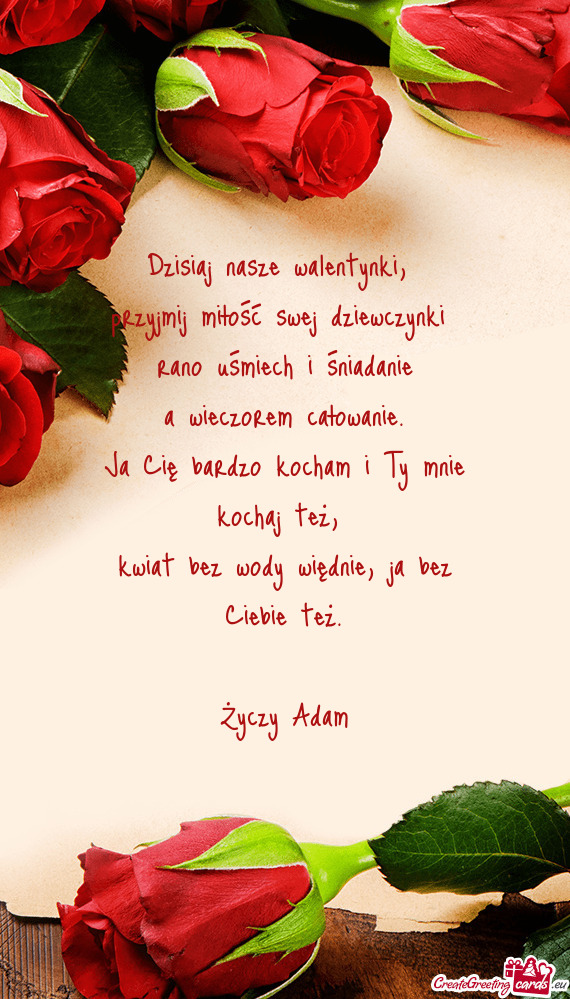 Dzisiaj nasze walentynki,
przyjmij miłość swej dziewczynki
rano uśmiech i śniadanie
a wieczorem całowanie.
Ja Cię bardzo kocham i Ty mnie
kochaj też,
kwiat bez wody więdnie, ja bez
Ciebie też.
Życzy Adam
CreateGreeting cards .eu